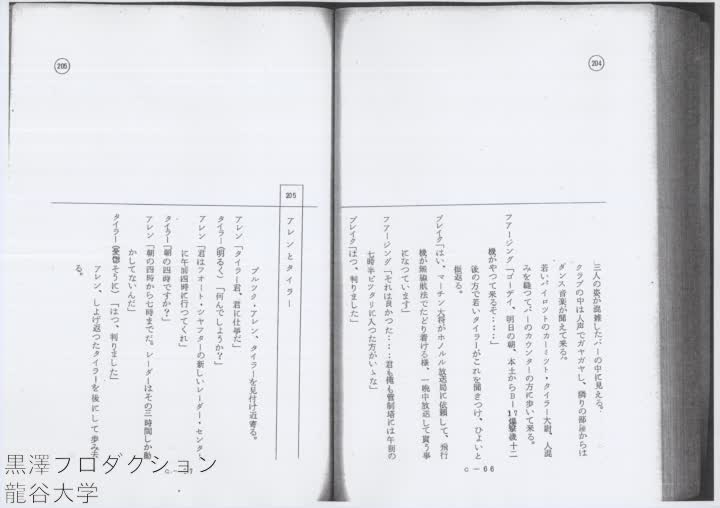 204
三人の姿が混雑したバーの中に見える。
クラブの中は人声でガヤガヤし、隣りの部屋からは
ダンス音楽が聞えて来る。
若いパイロットのカーミット・タイラー大尉、人混
みを縫つてバーのカウンターの方に歩いて来る。
フアージング「ゴーデイ、明日の朝、本土からB－17爆撃機十二
機がやつて来るぞ・・・・」
後の方で若いタイラーがこれを聞きつけ、ひよいと
振返る。
ブレイク「はい、マーチン大将がホノルル放送局に依頼して、飛行
機が無線航法でたどり着ける様、一晩中放送して貰う事
になつています」
フアージング「それは良かつた・・・君も俺も管制塔には午前の
七時半ピツタリに入つた方がいゝな」
ブレイク「はつ、判りました」
C－66
205
205 アレンとタイラー
ブルツク・アレン、タイラーを見付け近寄る。
アレン「タイラー君、君に仕事だ」
タイラー（明るく）「何んでしようか？」
アレン「君はフオート・シヤフターの新しいレーダー・センタ
に午前四時に行つてくれ」
タイラー「朝の四時ですか？」
アレン「朝の四時から七時までだ。レーダーはその三時間しか動
かしてないんだ」
タイラー（憂鬱そうに）「はつ、判りました」
アレン、しよげ返つたタイラーを後にして歩み去
る。
C－67
黒澤プロダクション
龍谷大学